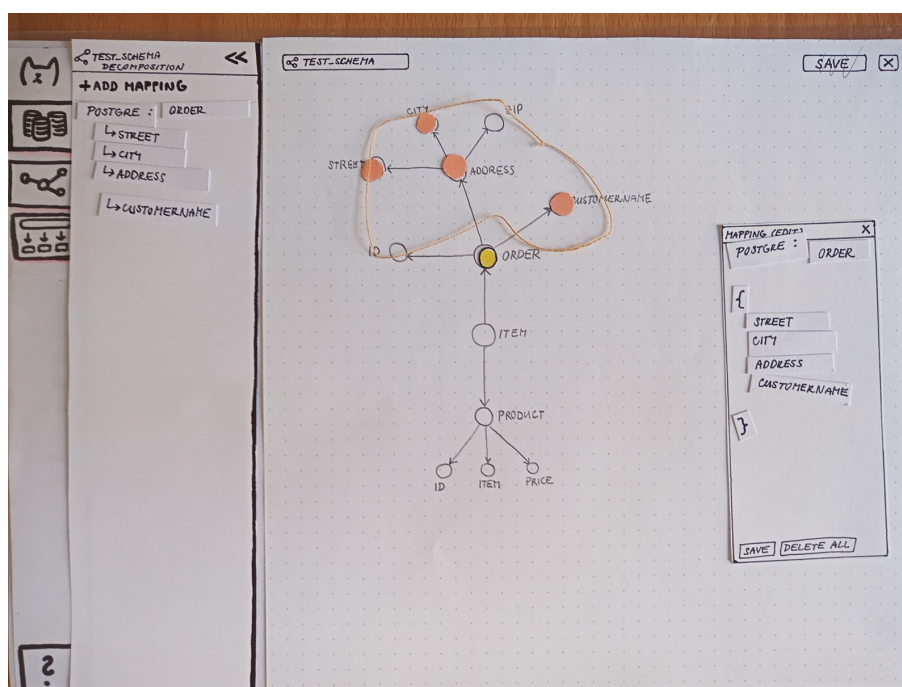 TEST_SCHEMA
DECOMPOSITION
<<
+ADD MAPPING
POSTGRE : ORDER
↳STREET
↳CITY
↳ADDRESS
↳CUSTOMERNAME
TEST_SCHEMA
SAVE X
CITY
ZIP
STREET
ADDRESS
CUSTOMERNAME
ID
ORDER
ITEM
PRODUCT
ID
ITEM
PRICE
MAPPING (EDIT) X
POSTGRE : ORDER
{
STREET
CITY
ADDRESS
CUSTOMERNAME
}
SAVE DELETE ALL
?